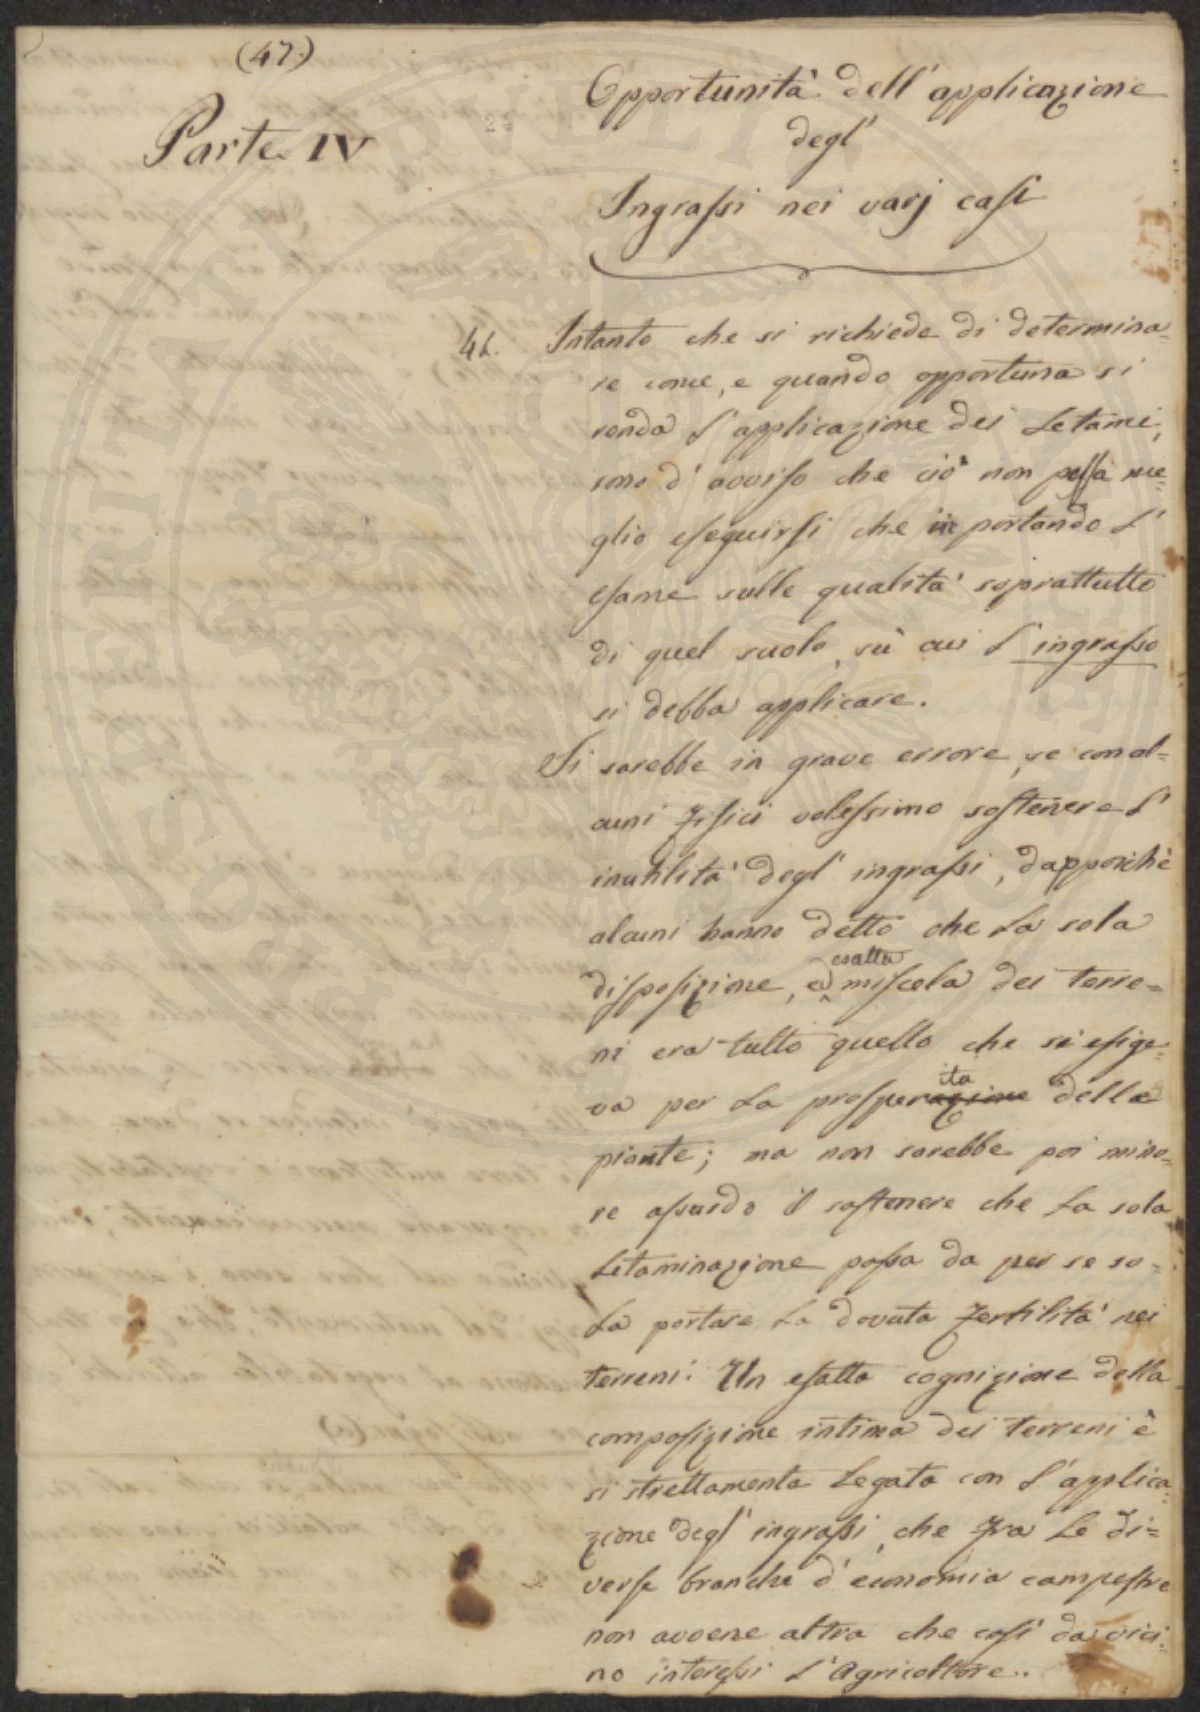 (47.)
Parte IV
Opportunità dell' applicazione
degl'
Ingrassi nei varj casi
41. Intanto che si richiede di determina=
re come, e quando opportuna si
renda l' applicazione dei Letami,
sono d' avviso che ciò non possa me=
glio eseguirsi che portando l'
esame sulle qualità soprattutto
di quel suolo, sù cui l' ingrasso
si debba applicare.
Si sarebbe in grave errore, se con al=
cuni Fisici volessimo sostenere l'
inutilità degl' ingrassi, dappoichè
alcuni hanno detto che la sola
disposizione, ed esatta miscela dei terre=
ni era tutto quello che si esige=
va per la prosperazione ita delle
piante; ma non sarebbe poi mino=
re assurdo il sostenere che la sola
Letaminazione possa da per se so=
la portare la dovuta fertilità nei
terreni: Un esatta cognizione della
composizione intima dei terreni è
si strettamente legata con l' applica=
zione degl' ingrassi, che fra le di=
verse branche d' economia campestre
non avvene altra che così da vici=
no interessi l' Agricoltore.